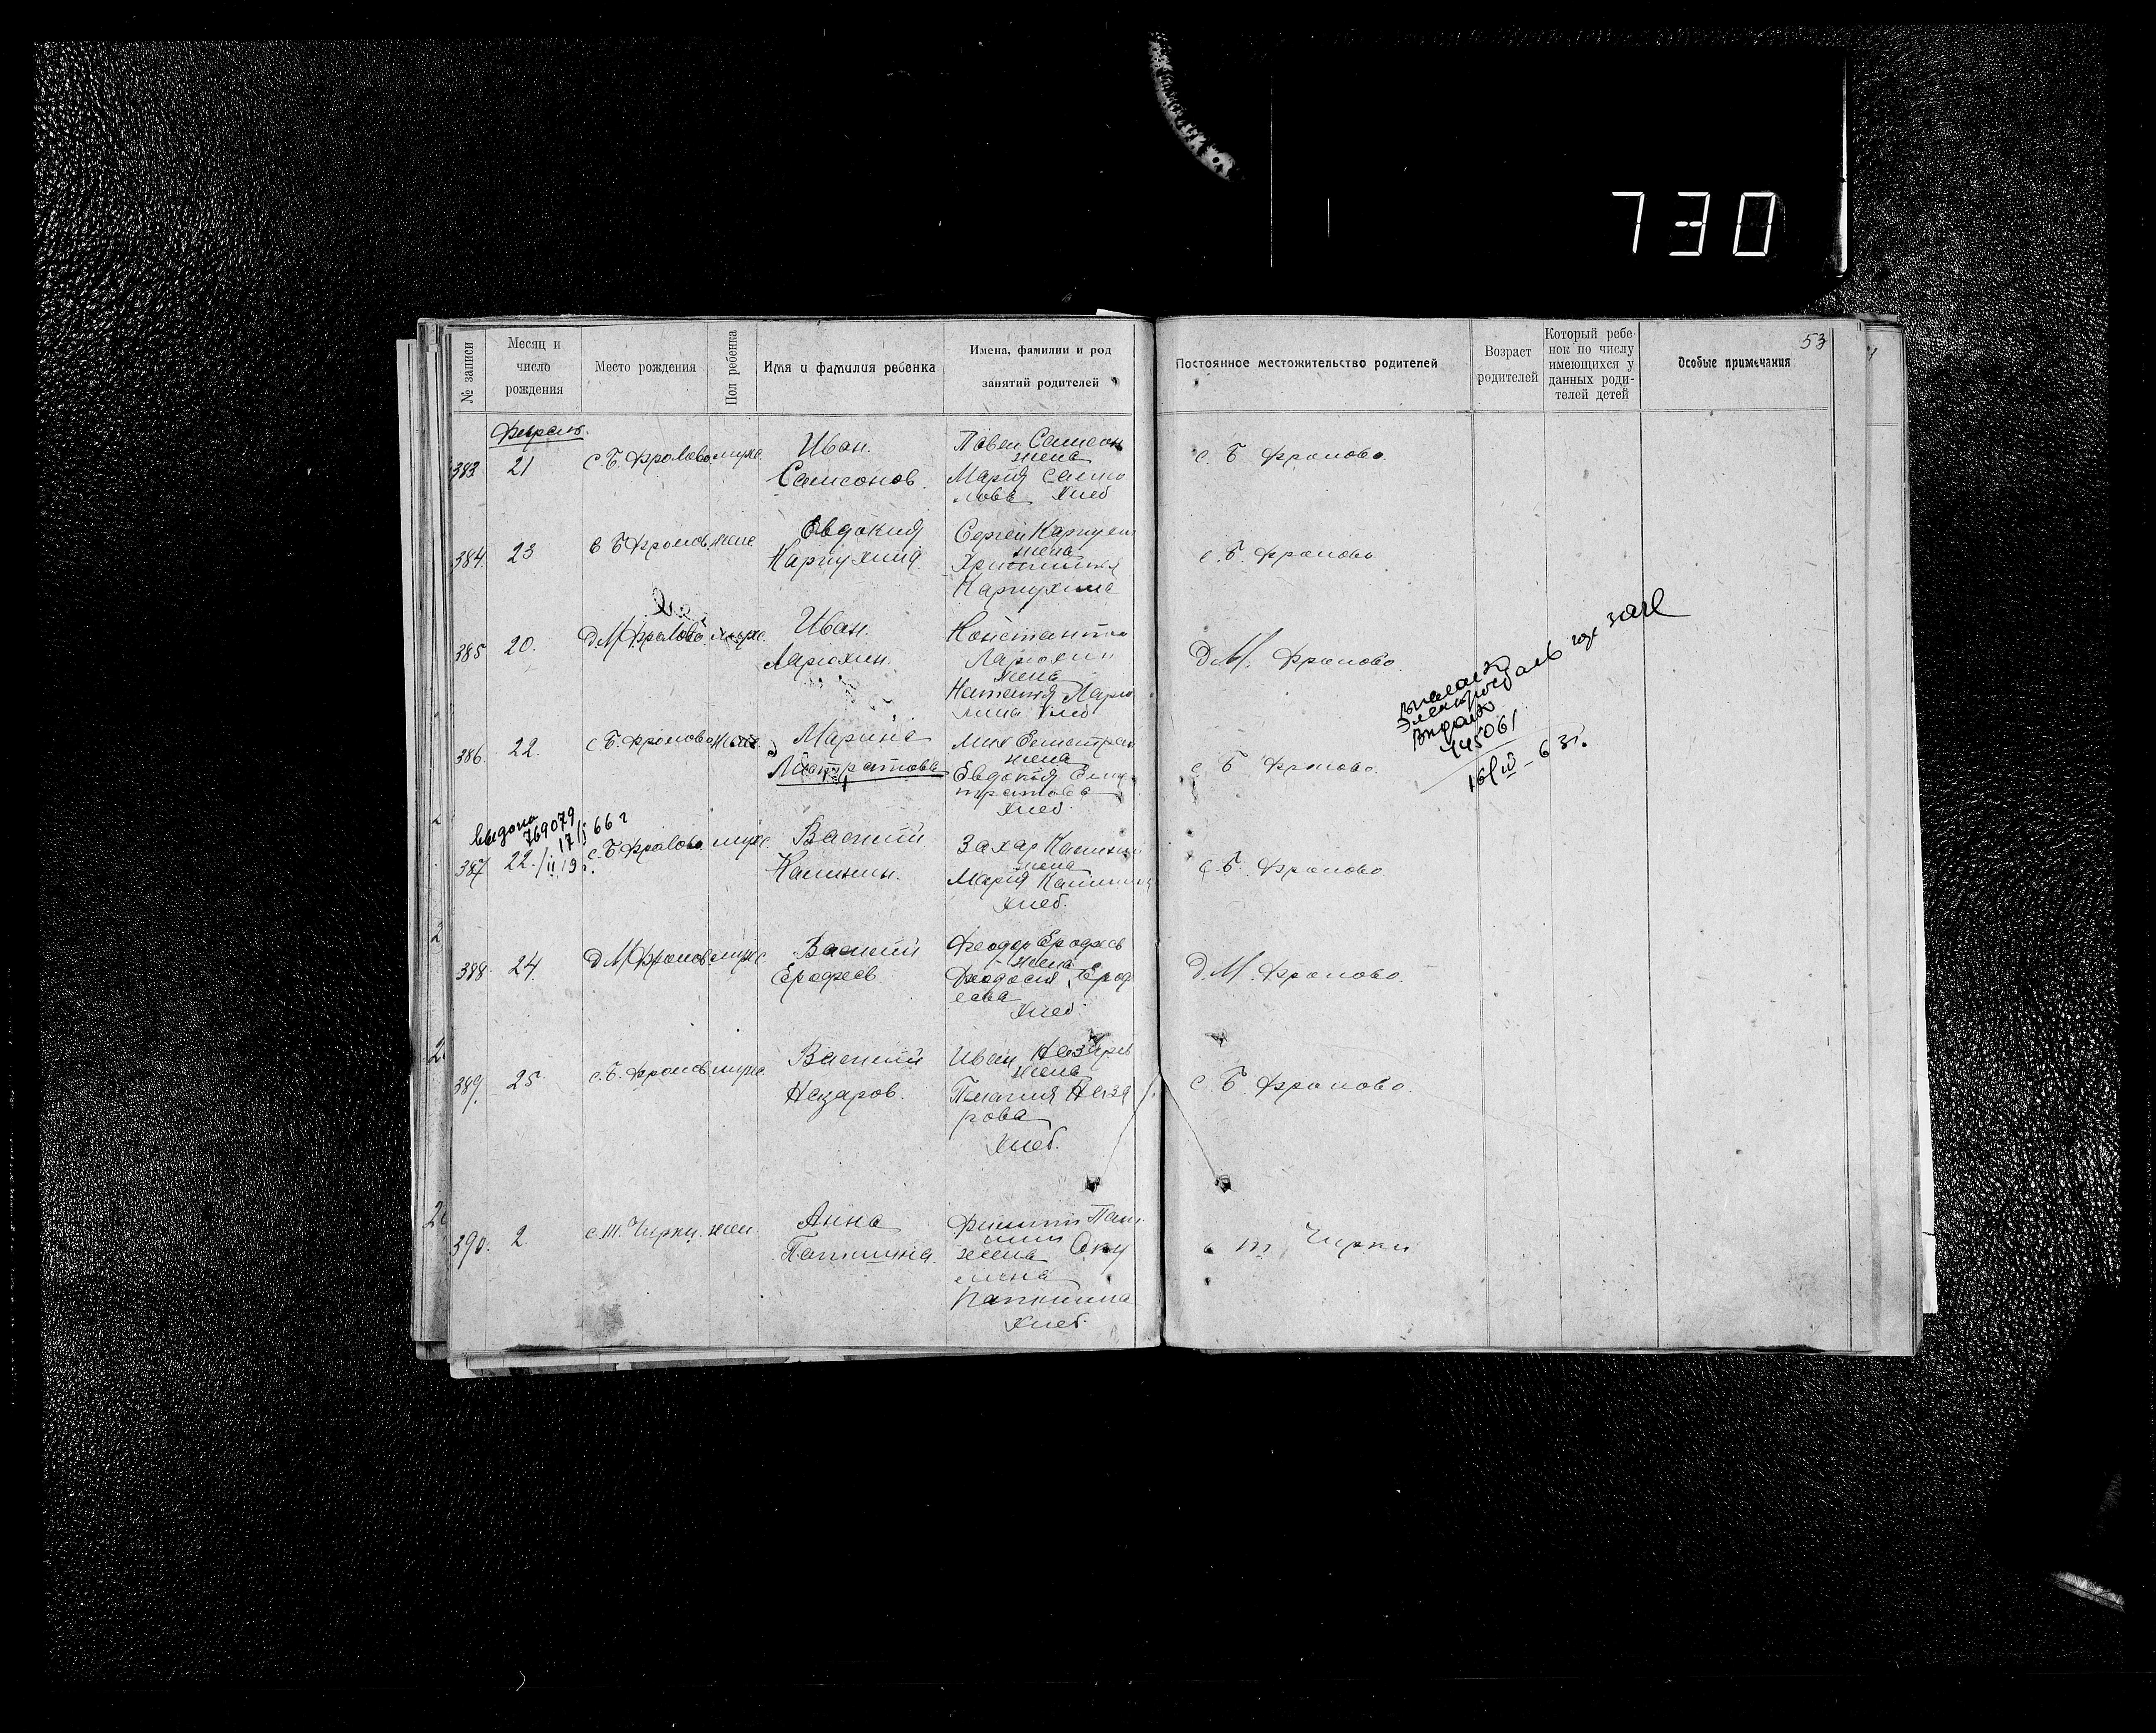 730
53
№ записи
Месяц и число рождения
Место рождения
Пол ребенка
Имя и фамилия ребенка
Имена, фамилии и род занятий родителей
Постоянное местожительство родителей
Возраст родителей
Который ребенок по числу имеющихся у данных родителей детей
Особые примечания
Февраль.
383 21 с. Б. Фролово муж.
Иван.
Самсонов.
Павел Самсон
жена
Мария Самсо
нова Хлеб
с. Б. Фролово.
384. 23
Евдокия
Карпухина
Сергей Карпухин
жена
Карпухина
с. Б. Фролово
385 20. д М Фролово. муж.
Иван.
Ларюхин.
Константин
Ларюхин
жена
Наталия Ларю
хина Хлеб
Д М. Фролово.
выдано
445061
16/IV-63г.
386. 22. с Б. Фролово
Марина
Евдокия
Хлеб.
с Б Фролово.
выдана
769079
17/ 66 г
387 22./II 19 г. с. Б Фролово муж.
Василий
Калинин.
Захар Калинин
жена
Мария Калинина
Хлеб.
с Б. Фролово
388. 24. д М Фролово муж.
Василий
Ерофеев
Феодор Ерофеев
жена
Феодосия Ероф
еева
Хлеб.
Д. М. Фролово.
389. 25. с. Б. Фролов муж.
Василий
Назаров.
Иван Назаров
жена
Пелагия Наза
рова
Хлеб.
с. Б Фролово
390. 2. с. т. Чирки. жен.
Анна
Папкшина.
Филипп
жена
Хлеб.
с т. Чирки